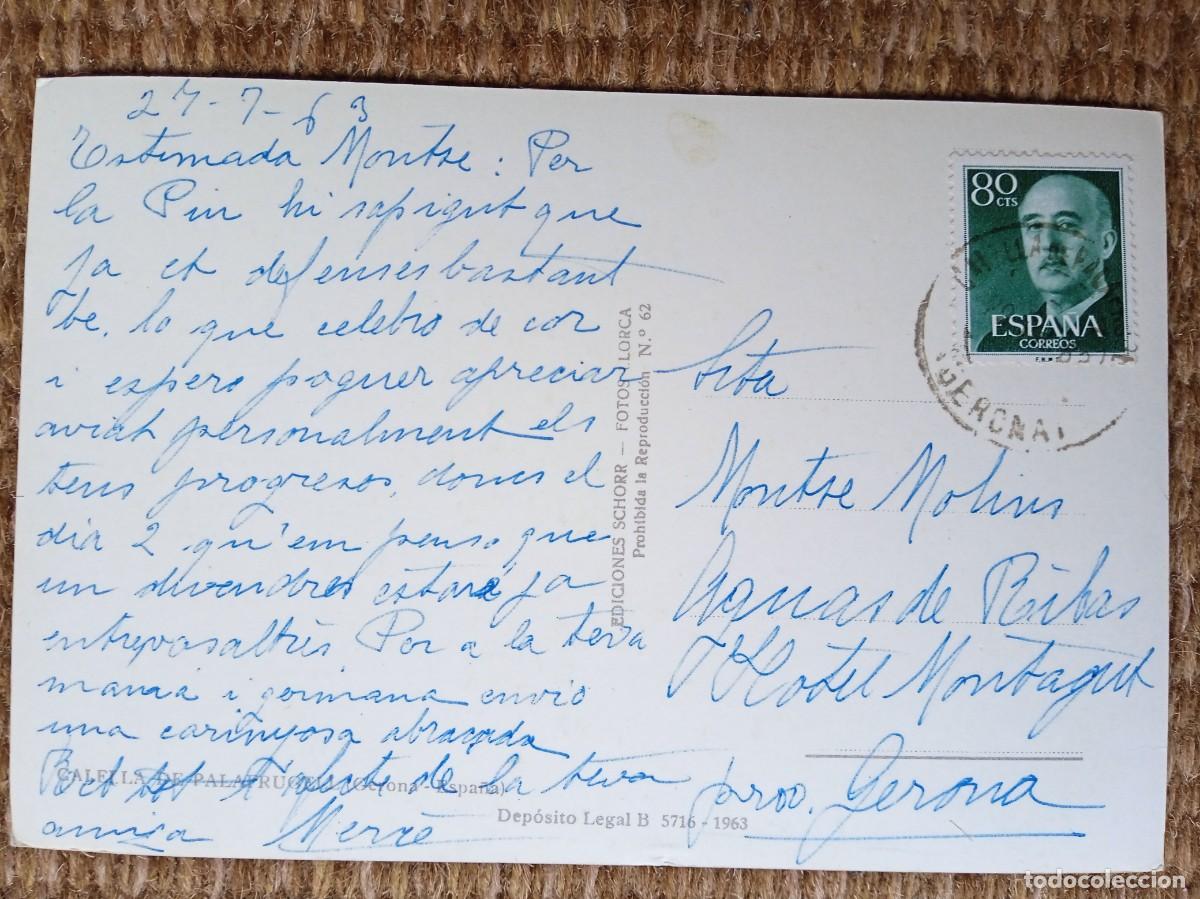 27-7-63
Estimada Montse: Per
la Piu hi sapigut que
ja et defenses bastant
be, lo que celebro de cor
i espero poguer apreciar
aviat personalment els
teus progresos, doncs el
dia 2 qu'em penso que
un divendres estaré ja
entre vosaltres. Per a la teva
mamà i germana envio
una carinyosa abraçada
Ret tot l'afecte de la teva
amiga Mercè
CALELLA DE PALAFRUGELL (Gerona - España)
Depósito Legal B 5716 - 1963
EDICIONES SCHORR — FOTOS LORCA
Prohibida la Reproducción N.º 62
80
CTS
ESPAÑA
CORREOS
GERONA
Srta
Montse Molins
Aguas de Ribas
Hotel Montagut
prov. Gerona
todocoleccion